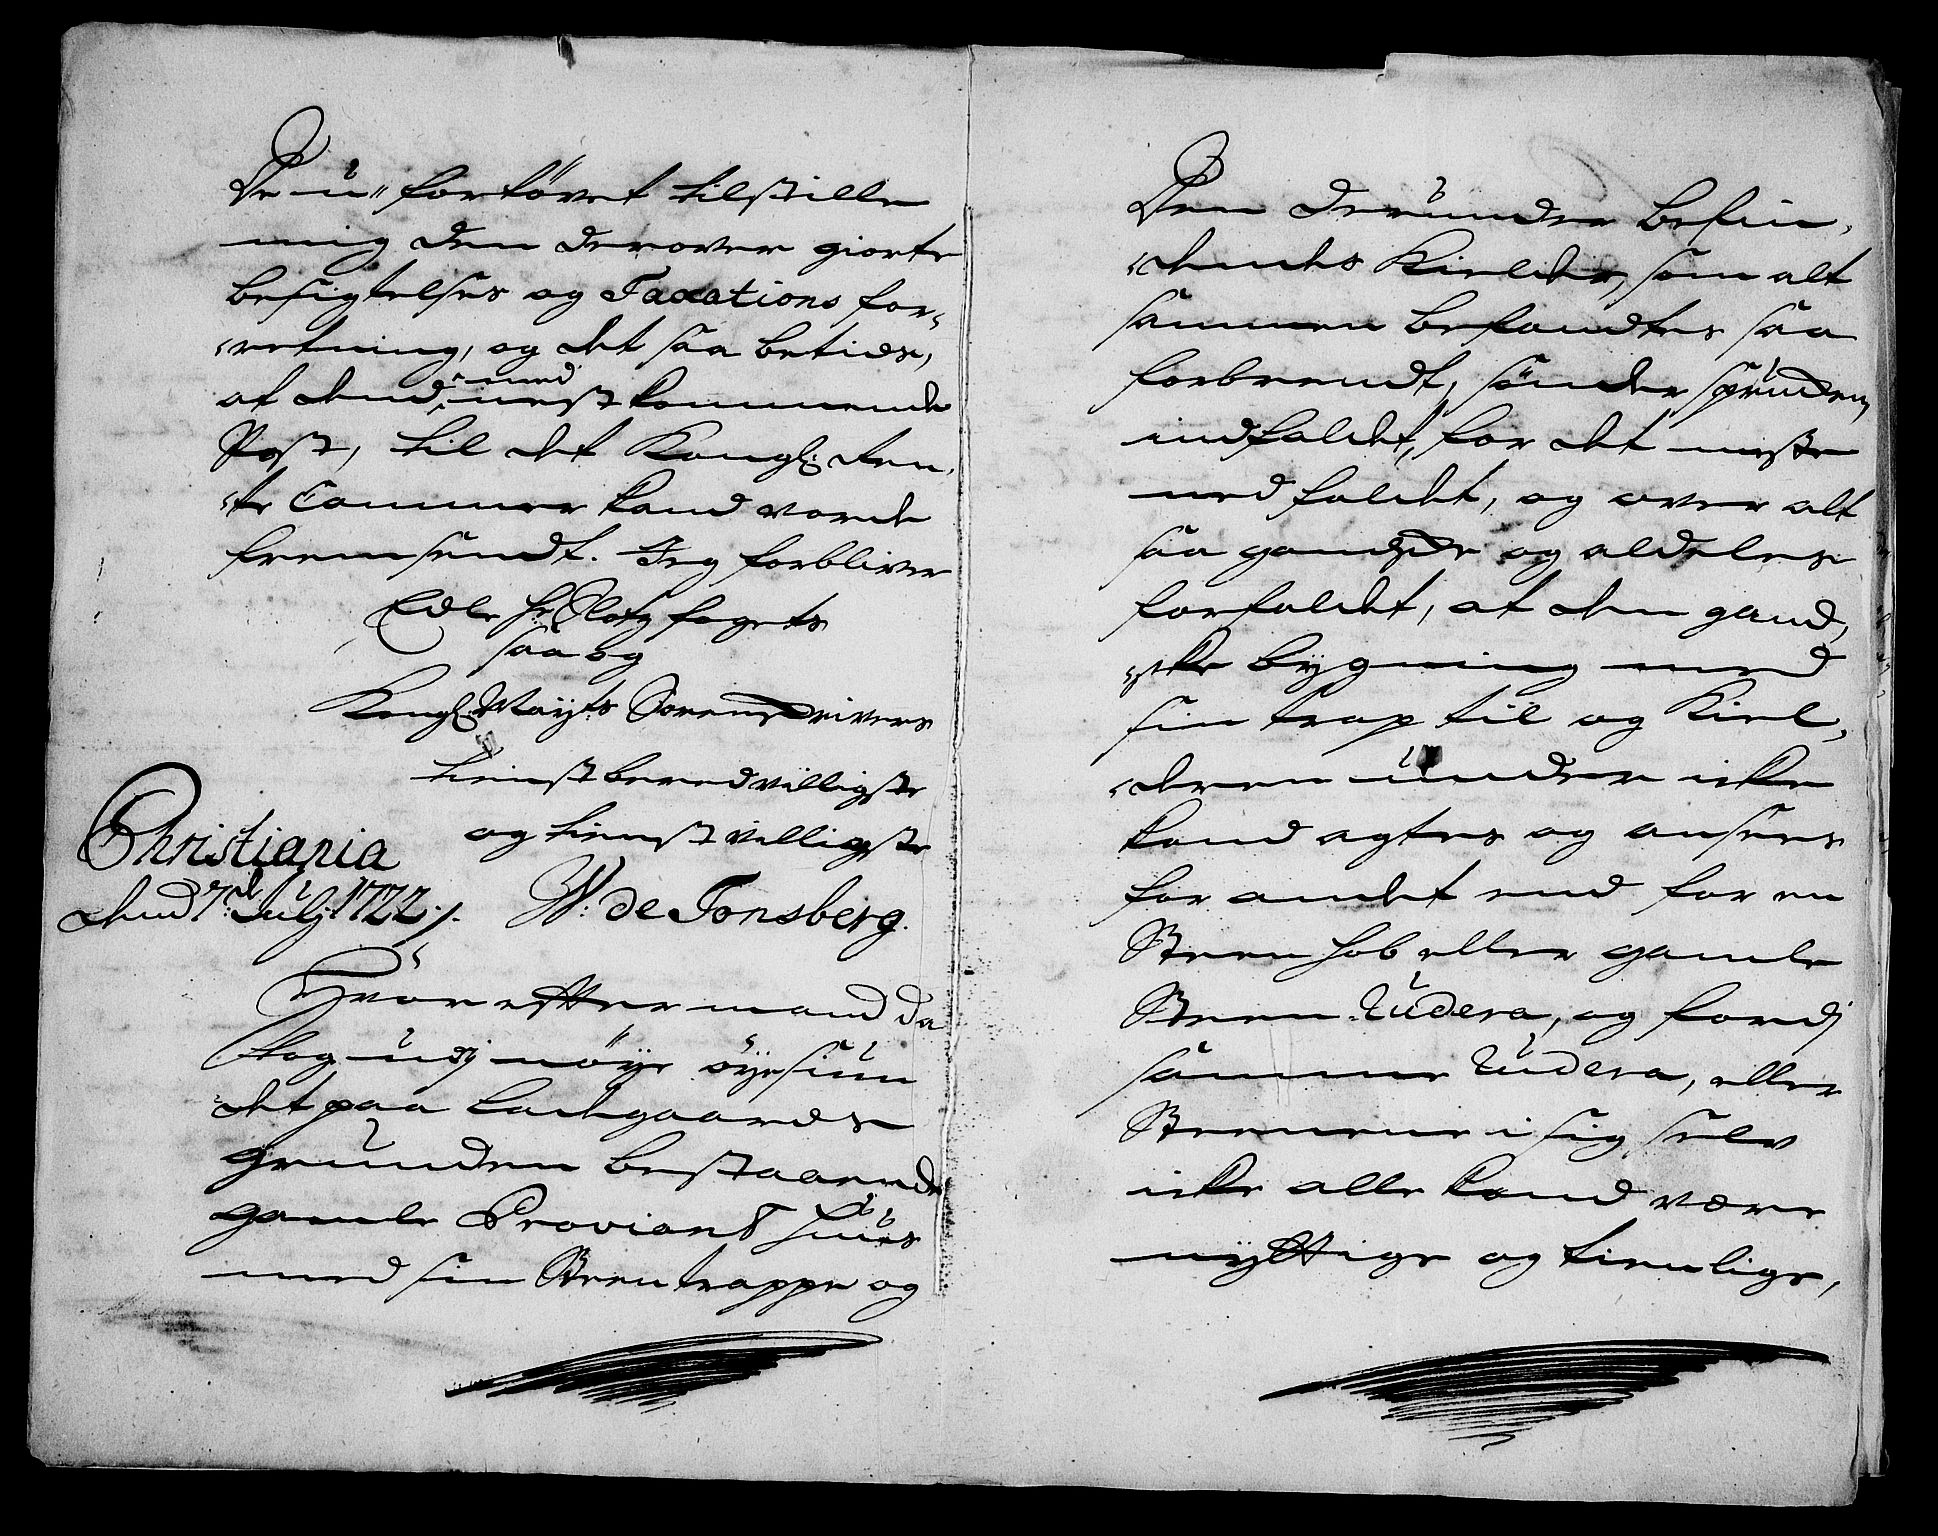 De u-fortøvet tilstille
mig den derover giorte
besigtelses og Taxations for-
retning, og det saa betids,
at dend med nest kommende
Post, til det Kongl: Ren-
te Cammer kand vorde
fremsendt. Jeg forbliver
Edle Hr Slotz fogets
saa og
Kongl. Mayts Sorenskrivers
tienstberedvilligste
og tienstvilligste
Christiania
dend 7de Julj 1722 /. W: de Tonsberg.
Hvor effter mand da
tog udj nøye øyesiun
det paa Ladegaards
grunden bestaaende
gamle Proviant Huus
med sin Steen trappe og
Den derunder befin-
dendes Kielder, som alt
sammen befandtes saa
forbrendt, sønder sprunden,
indfaldet, for det meste
ned faldet, og over alt
saa gandske og aldeles
forfaldet, at den gand-
ske bygning med
sin trap til og Kiel-
deren under icke
kand agtes og ansees
for andet end for en
Steen Hob eller gamle
Steen Rudera, og fordj
samme Rudera, eller
Steenene i sig selv
icke alle kand være
nyttige og tienlige,